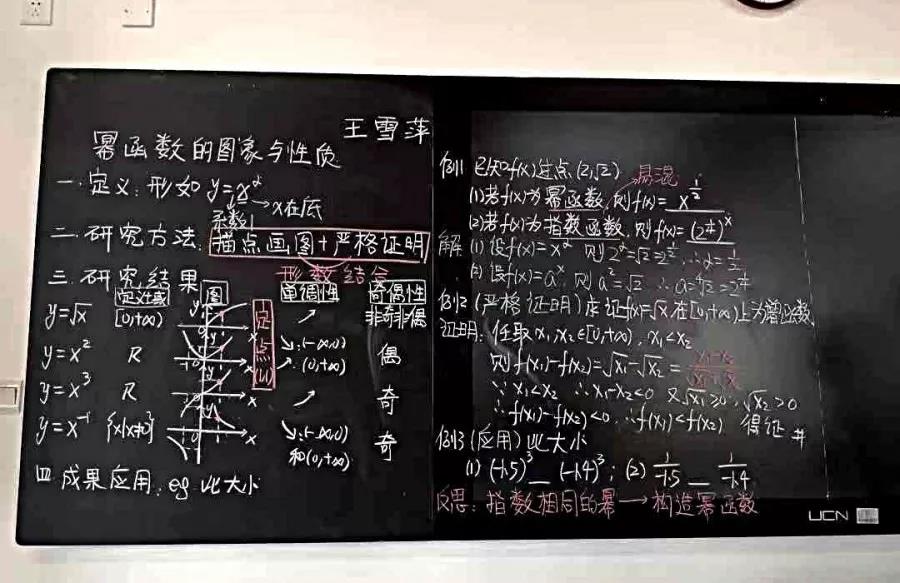 王雪萍
幂函数的图象与性质
一.定义:形如 y=x^α
系数1 → x在底
二.研究方法:描点画图+严格证明
形数结合
三.研究结果
定义域 图 单调性 奇偶性
y=√x [0,+∞) ↗ 非奇非偶
y=x² R ↘(-∞,0) ↗(0,+∞) 偶
y=x³ R ↗ 奇
y=x⁻¹ {x|x≠0} ↘(-∞,0)和(0,+∞) 奇
定点(1,1)
四.成果应用:eg 比大小
例1 已知f(x)过点(2,√2) 易混
(1)若f(x)为幂函数,则f(x)=x^(1/2)
(2)若f(x)为指数函数,则f(x)=(2^(1/4))^x
解(1)设f(x)=x^α 则2^α=√2=2^(1/2) ∴α=1/2
(2)设f(x)=a^x,则a²=√2 ∴a=⁴√2=2^(1/4)
例2(严格证明)求证f(x)=√x在[0,+∞)上为增函数
证明:任取x₁,x₂∈[0,+∞),x₁<x₂
则f(x₁)-f(x₂)=√x₁-√x₂=
∵x₁<x₂ ∴x₁-x₂<0 又√x₁≥0,√x₂>0
∴f(x₁)-f(x₂)<0,∴f(x₁)<f(x₂) 得证 #
例3(应用)比大小
(1)(-1.5)³__(-1.4)³;(2)1/-1.5__1/-1.4
反思:指数相同的幂→构造幂函数
UCN